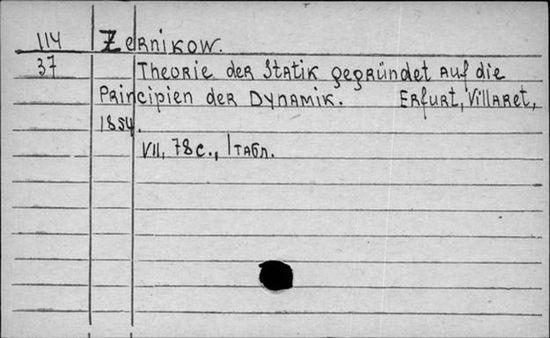 114 Zernikow.
37 Theorie der Statik gegründet auf die
Principien der Dynamik. Erfurt, Villaret,
1854.
VII, 78 с., 1 табл.